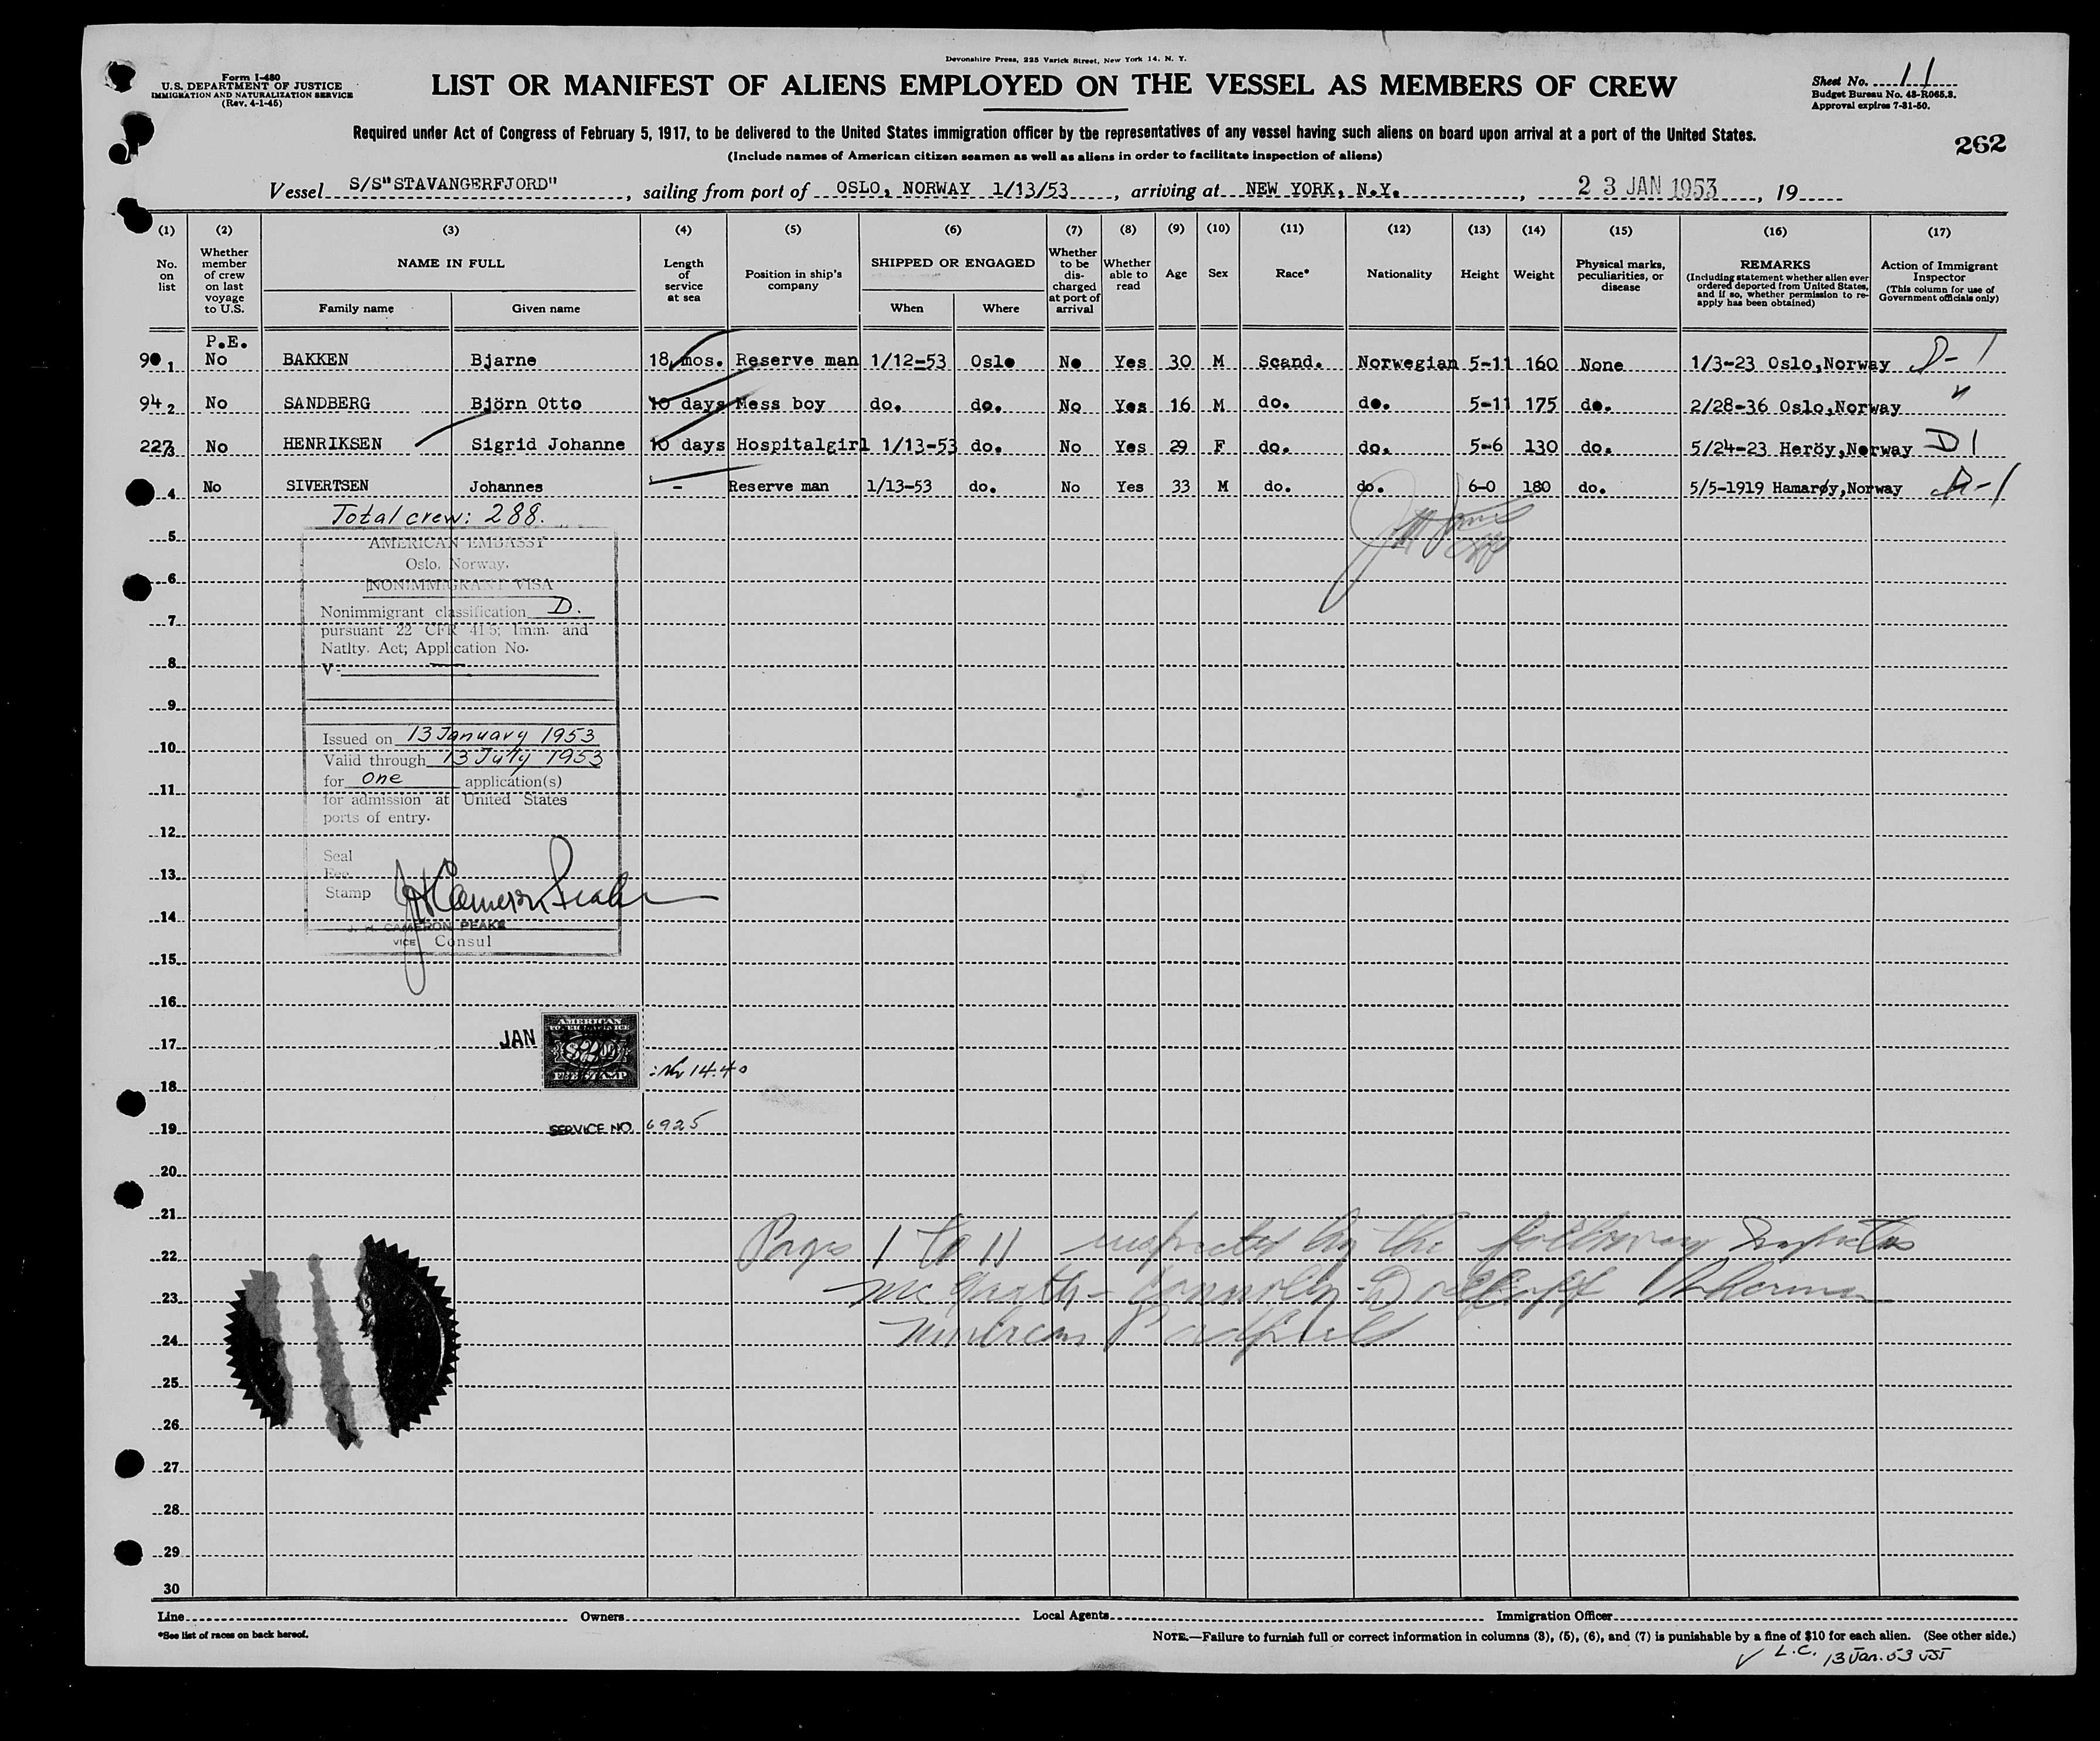 Devonshire Press, 225 Varick Street, New York 14, N. Y.
Form I-480
U.S. DEPARTMENT OF JUSTICE
IMMIGRATION AND NATURALIZATION SERVICE
(Rev. 4-1-45)
LIST OR MANIFEST OF ALIENS EMPLOYED ON THE VESSEL AS MEMBERS OF CREW
Sheet No. 11
Budget Bureau No. 43-R065.3.
Approval expires 7-31-50.
Required under Act of Congress of February 5, 1917, to be delivered to the United States immigration officer by the representatives of any vessel having such aliens on board upon arrival at a port of the United States.
(Include names of American citizen seamen as well as aliens in order to facilitate inspection of aliens)
262
Vessel S/S"STAVANGERFJORD", sailing from port of OSLO, NORWAY 1/13/53, arriving at NEW YORK, N.Y., 23 JAN 1953, 19
(1) (2) (3) (4) (5) (6) (7) (8) (9) (10) (11) (12) (13) (14) (15) (16) (17)
No. on list
Whether member of crew on last voyage to U.S.
NAME IN FULL
Family name
Given name
Length of service at sea
Position in ship's company
SHIPPED OR ENGAGED
When
Where
Whether to be discharged at port of arrival
Whether able to read
Age
Sex
Race*
Nationality
Height
Weight
Physical marks, peculiarities, or disease
REMARKS
(Including statement whether alien ever ordered deported from United States, and if so, whether permission to reapply has been obtained)
Action of Immigrant Inspector
(This column for use of Government officials only)
P.E.
90 1 No BAKKEN Bjarne 18 mos. Reserve man 1/12-53 Oslo No Yes 30 M Scand. Norwegian 5-11 160 None 1/3-23 Oslo,Norway D-1
94 2 No SANDBERG Björn Otto 10 days Mess boy do. do. No Yes 16 M do. do. 5-11 175 do. 2/28-36 Oslo,Norway "
227 3 No HENRIKSEN Sigrid Johanne 10 days Hospitalgirl 1/13-53 do. No Yes 29 F do. do. 5-6 130 do. 5/24-23 Heröy,Norway D1
4 No SIVERTSEN Johannes - Reserve man 1/13-53 do. No Yes 33 M do. do. 6-0 180 do. 5/5-1919 Hamarøy,Norway D-1
Total crew: 288.
5
AMERICAN EMBASSY
Oslo, Norway.
6
NONIMMIGRANT VISA
Nonimmigrant classification D.
7
pursuant 22 CFR 41.5; Imm. and
Natlty. Act; Application No.
8
V-
9
10
Issued on 13 January 1953
Valid through 13 July 1953
for one application(s)
11
for admission at United States
ports of entry.
12
Seal
13
Fee
Stamp
14
J. H. CAMERON PEAKE
VICE Consul
15
16
17
JAN
AMERICAN
FEE STAMP
14.40
18
19
SERVICE NO. 6925
20
21
22
Pages 1 to 11 inspected by the following Inspectors
23
McGrath - Connolly -
24
25
26
27
28
29
30
Line Owners Local Agents Immigration Officer
*See list of races on back hereof.
NOTE.—Failure to furnish full or correct information in columns (3), (5), (6), and (7) is punishable by a fine of $10 for each alien. (See other side.)
L.C. 13 Jan. 53